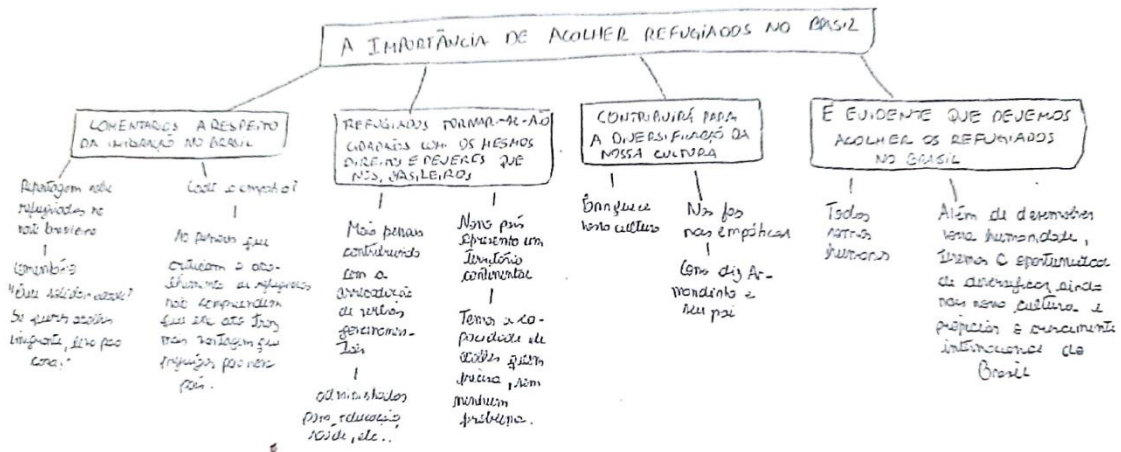 A IMPORTÂNCIA DE ACOLHER REFUGIADOS NO BRASIL
COMENTÁRIOS A RESPEITO
DA IMIGRAÇÃO NO BRASIL
Reportagem sobre
refugiados no
comentário
imigrante, leve pra
casa."
Cadê a empatia?
As pessoas que
criticam o aco-
lhimento de refugiados
não compreendem
que esse ato traz
mais vantagem que
prejuízos para nosso
país.
REFUGIADOS TORNAR-SE-ÃO
CIDADÃOS COM OS MESMOS
DIREITOS E DEVERES QUE
NÓS, BRASILEIROS
Mais pessoas
contribuindo
com a
arrecadação
de verbas
governamen-
tais
administrados
para educação,
saúde, etc..
Nosso país
apresenta um
território
continental
Temos a ca-
pacidade de
acolher quem
precisa, sem
nenhum
problema.
CONTRIBUIRÁ PARA
A DIVERSIFICAÇÃO DA
NOSSA CULTURA
nossa cultura
Nos faz
mais empáticos
Como diz Ar-
mandinho e
seu pai
É EVIDENTE QUE DEVEMOS
ACOLHER OS REFUGIADOS
NO BRASIL
Todos
somos
humanos
Além de desenvolver
nossa humanidade,
teremos a oportunidade
de diversificar ainda
mais nossa cultura e
propiciar o crescimento
internacional do
Brasil